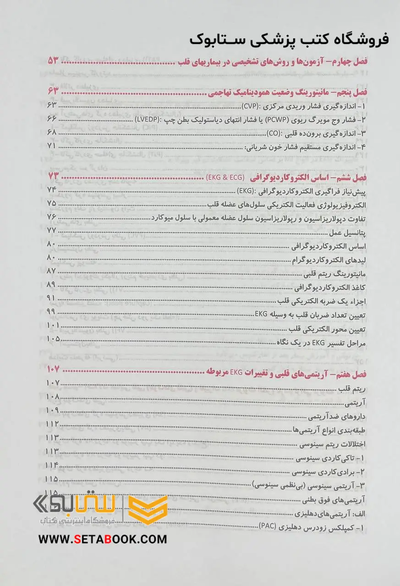 فروشگاه کتب پزشکی ستابوک
فصل چهارم– آزمون‌ها و روش‌های تشخیصی در بیماریهای قلب ۵۳
فصل پنجم– مانیتورینگ وضعیت همودینامیک تهاجمی ۶۳
۱– اندازه‌گیری فشار وریدی مرکزی (CVP): ۶۳
۲– فشار وج مویرگ ریوی (PCWP) یا فشار انتهای دیاستولیک بطن چپ (LVEDP): ۶۶
۳– اندازه‌گیری برون‌ده قلبی (CO): ۶۸
۴– اندازه‌گیری مستقیم فشار خون شریانی: ۷۱
فصل ششم– اساس الکتروکاردیوگرافی (EKG & ECG) ۷۳
پیش‌نیاز فراگیری الکتروکاردیوگرافی (EKG): ۷۴
الکتروفیزیولوژی فعالیت الکتریکی سلول‌های عضله قلب ۷۵
تفاوت دپولاریزاسیون و رپولاریزاسیون سلول عضله معمولی با سلول میوکارد ۷۶
پتانسیل عمل ۷۷
اساس الکتروکاردیوگرافی ۸۰
لیدهای الکتروکاردیوگرام ۸۰
مانیتورینگ ریتم قلبی ۸۷
کاغذ الکتروکاردیوگرافی ۸۹
اجزاء یک ضربه الکتریکی قلب ۹۱
تعیین تعداد ضربان قلب به وسیله EKG ۹۹
تعیین محور الکتریکی قلب ۱۰۱
مراحل تفسیر EKG در یک نگاه ۱۰۵
فصل هفتم– آریتمی‌های قلبی و تغییرات EKG مربوطه ۱۰۷
ریتم قلب ۱۰۷
آریتمی ۱۰۸
داروهای ضدآریتمی ۱۰۹
طبقه‌بندی انواع آریتمی‌ها ۱۱۲
اختلالات ریتم سینوسی ۱۱۲
۱– تاکی‌کاردی سینوسی ۱۱۳
۲– برادی‌کاردی سینوسی ۱۱۴
۳– آریتمی سینوسی (بی‌نظمی سینوسی) ۱۱۴
آریتمی‌های فوق بطنی ۱۱۵
الف: آریتمی‌های‌دهلیزی
۱– کمپلکس زودرس دهلیزی (PAC)
ستابوک
فروشگاه اینترنتی کتاب
WWW.SETABOOK.COM